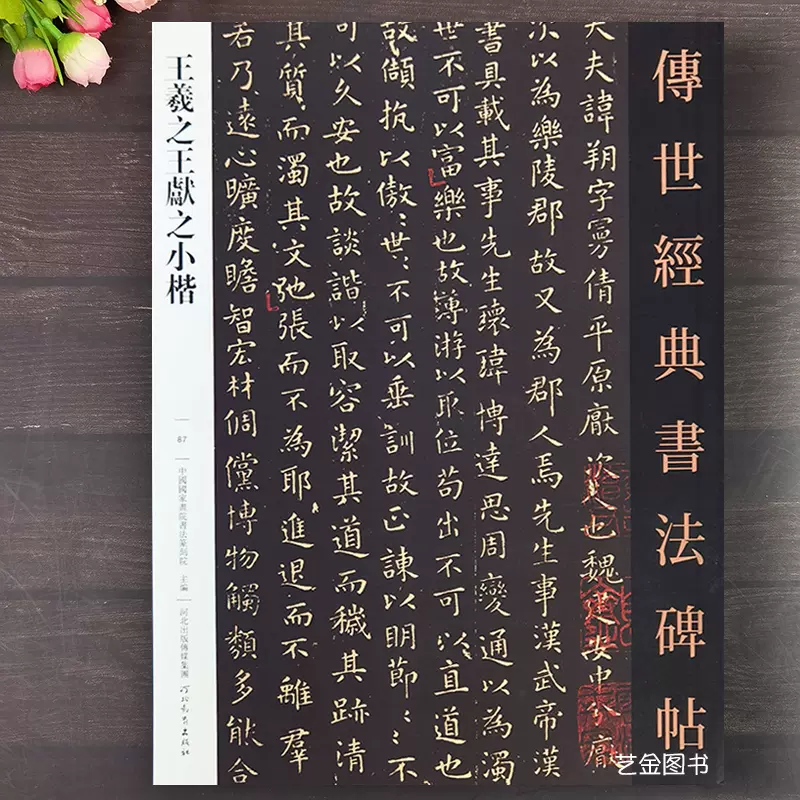 傳世經典書法碑帖
大夫諱朔字曼倩平原厭次人也魏建安中分厭
次以為樂陵郡故又為郡人焉先生事漢武帝漢
書具載其事先生瓌瑋博達思周變通以為濁
世不可以富樂也故薄游以取位苟出不可以直道也
故傾抗以傲〻世〻不可以垂訓故正諫以明節〻〻不
可以久安也故談諧以取容潔其道而穢其跡清
其質而濁其文弛張而不為耶進退而不離群
若乃遠心曠度瞻智宏材倜儻博物觸類多能合
王羲之王獻之小楷
87
中國國家畫院書法篆刻院 主編
河北出版傳媒集團
河北教育出版社
艺金图书